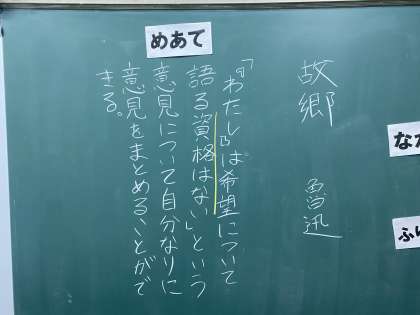 めあて
故郷 魯迅
「『わたし』は希望について
語る資格はない」という
意見について自分なりに
意見をまとめることがで
きる。
な
ふり